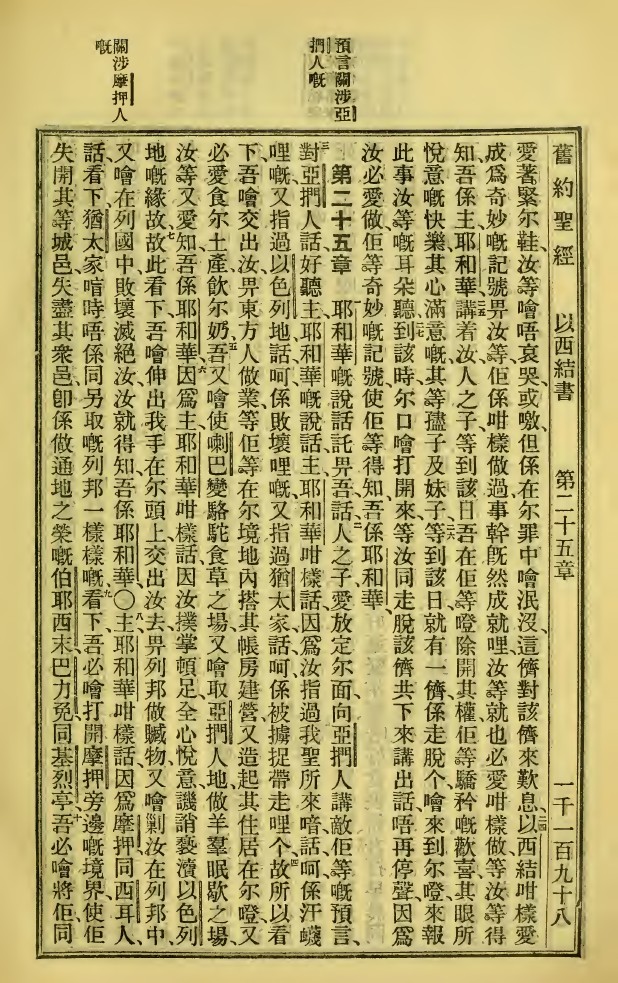 舊約聖經 以西結書 第二十五章 一千一百九十八
預言關涉亞
捫人嘅
關涉摩押人
嘅
愛著緊尔鞋、汝等噲唔哀哭、或噭、但係在尔罪中噲泯沒、這儕對該儕來歎息、二四以西結咁樣愛
成爲奇妙嘅記號畀汝等、佢係咁樣做過事幹、旣然成就哩、汝等就也必愛咁樣做、等汝等得
知吾係主耶和華、二五講着汝人之子、等到該日、吾在佢等嶝除開其權、佢等驕矜嘅歡喜、其眼所
悅意嘅快樂、其心滿意嘅、其等孻子及妹子、二六等到該日、就有一儕係走脫个、噲來到尔嶝來報
此事、汝等嘅耳朵聽到、二七該時尔口噲打開來、等汝同走脫該儕共下來講出話、唔再停聲、因爲
汝必愛做佢等奇妙嘅記號、使佢等得知、吾係耶和華、
第二十五章 一耶和華嘅說話託畀吾話、二人之子、愛放定尔面向亞捫人、講敵佢等嘅預言、
三對亞捫人話、好聽主耶和華嘅說話、主耶和華咁樣話、因爲汝指過我聖所來喑話、呵、係汗衊
哩嘅、又指過以色列地話、呵、係敗壞哩嘅、又指過猶太家話、呵、係被擄捉帶走哩个、四故所以看
下、吾噲交出汝畀東方人做業、等佢等在尔境地內、搭其帳房建營、又造起其住居在尔嶝、又
必愛食尔土產、飲尔奶、五吾又噲使喇巴變駱駝食草之場、又噲取亞捫人地做羊羣眠歇之場、
汝等又愛知、吾係耶和華、六因爲主耶和華咁樣話、因汝撲掌頓足、全心悅意譏誚褻瀆以色列
地嘅緣故、七故此看下、吾噲伸出我手在尔頭上、交出汝去畀列邦做贓物、又噲剿汝在列邦中、
又噲在列國中敗壞滅絕汝、汝就得知吾係耶和華、〇八主耶和華咁樣話、因爲摩押同西耳人、
話看下、猶太家啃時唔係同另取嘅列邦一樣樣嘅、九看下、吾必噲打開摩押旁邊嘅境界、使佢
失開其等城邑、失盡其衆邑、卽係做通地之榮嘅、伯耶西末、巴力免、同基烈亭、十吾必噲將佢同